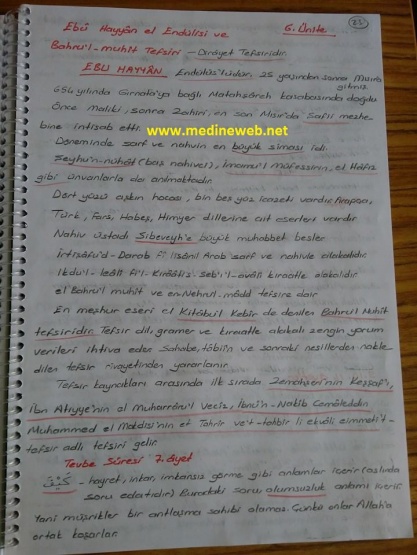 23
Ebû Hayyân el Endülîsi ve 6. Ünite
Bahru'l-muhit Tefsiri - Dirâyet Tefsiridir.
EBU HAYYÂN Endülüs'lüdür. 25 yaşından sonra Mısır'a gitmiş.
654 yılında Gırnata'ya bağlı Matahşâreh kasabasında doğdu
Önce Maliki, sonra Zahiri, en son Mısır'da Şafii mezhe-
bine intisab etti.
www.medineweb.net
Döneminde sarf ve nahvin en büyük siması idi.
Şeyhu'n-nuhât (bazı nahivci), İmamu'l Müfessirin, el Hafız
gibi ünvanlarla da anılmaktadır.
Dört yüzü aşkın hocası, bin beş yüz icazeti vardır. Arapça,
Türk, Fars, Habeş, Himyer dillerine ait eserleri vardır
Nahiv üstadı Sibeveyh'e büyük muhabbet besler
İrtişâfu'd-Darab fi lisânil Arab sarf ve nahivle alakalıdır.
Ikdu'l-leâli fi'l-Kırââtis-Seb'ı'l-avâli kıraatle alakalıdır.
el Bahru'l muhit ve en-Nehrul-mâdd tefsire dair
En meşhur eseri el Kitâbu'l Kebir de denilen Bahrul Muhit
tefsiridir. Tefsir dil, gramer ve kıraatle alakalı zengin yorum
verileri ihtiva eder. Sahabe, tâbiîn ve sonraki nesillerden nakle-
dilen tefsir rivayetinden yararlanır.
Tefsir kaynakları arasında ilk sırada Zemahşeri'nin Keşşaf'ı,
İbn Atıyye'nin el Muharrâru'l Veciz, İbnü'n-Nakib Cemâleddin
Muhammed el Makdisi'nin et Tahrir ve't-tahbir li ekvâli eimmeti't-
tefsir adlı tefsiri gelir.
Tevbe Sûresi 7. âyet
كَيْفَ - hayret, inkar, imkansız görme gibi anlamlar içerir (aslında
soru edatıdır) Buradaki soru, olumsuzluk anlamı içerir.
Yani müşrikler bir antlaşma sahibi olamaz. Çünkü onlar Allah'a
ortak koşarlar.